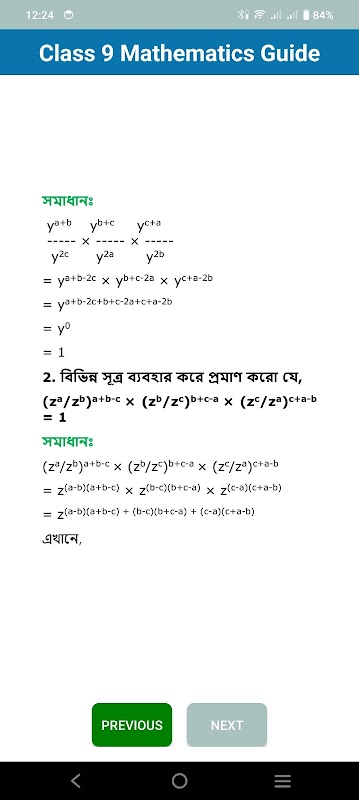 12:24 84%
Class 9 Mathematics Guide
সমাধানঃ
y^(a+b) y^(b+c) y^(c+a)
----- × ----- × -----
y^(2c) y^(2a) y^(2b)
= y^(a+b-2c) × y^(b+c-2a) × y^(c+a-2b)
= y^(a+b-2c+b+c-2a+c+a-2b)
= y^0
= 1
2. বিভিন্ন সূত্র ব্যবহার করে প্রমাণ করো যে,
(z^a/z^b)^(a+b-c) × (z^b/z^c)^(b+c-a) × (z^c/z^a)^(c+a-b)
= 1
সমাধানঃ
(z^a/z^b)^(a+b-c) × (z^b/z^c)^(b+c-a) × (z^c/z^a)^(c+a-b)
= z^(a-b)(a+b-c) × z^(b-c)(b+c-a) × z^(c-a)(c+a-b)
= z^(a-b)(a+b-c) + (b-c)(b+c-a) + (c-a)(c+a-b)
এখানে,
PREVIOUS NEXT